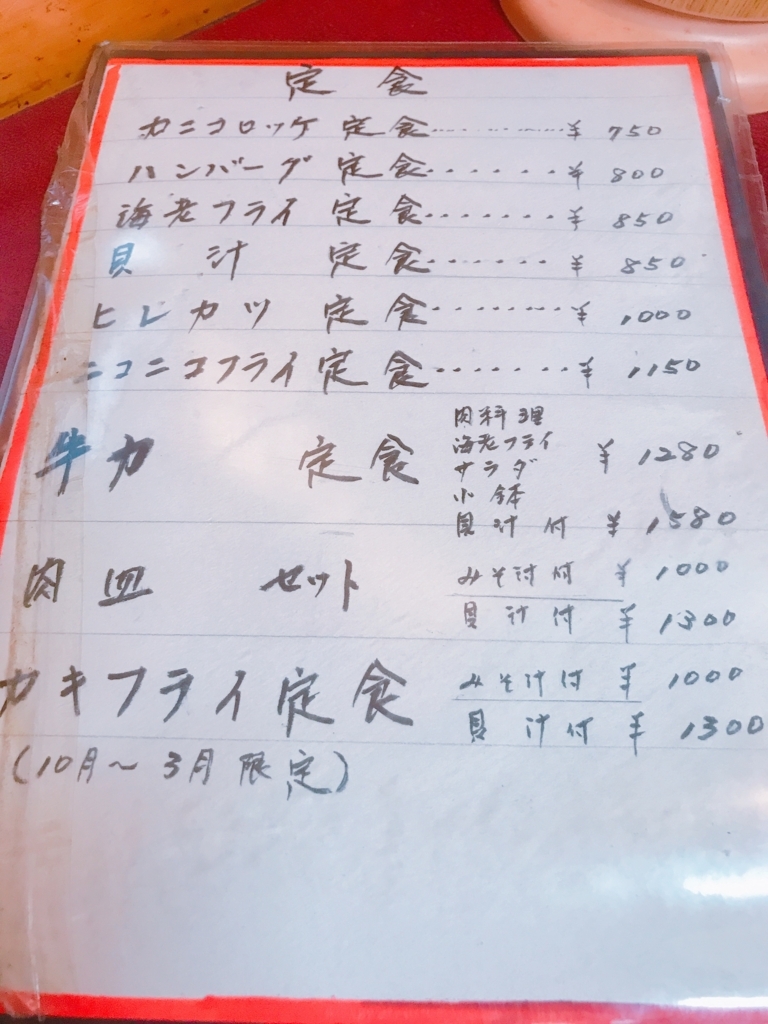 定食
カニコロッケ定食………¥750
ハンバーグ定食……¥800
海老フライ定食……¥850
貝汁定食……¥850
ヒレカツ定食………¥1000
ニコニコフライ定食……¥1150
牛力定食
肉料理
海老フライ
サラダ
小鉢
¥1280
貝汁付 ¥1580
肉皿セット
みそ汁付 ¥1000
貝汁付 ¥1300
カキフライ定食
みそ汁付 ¥1000
貝汁付 ¥1300
(10月~3月限定)